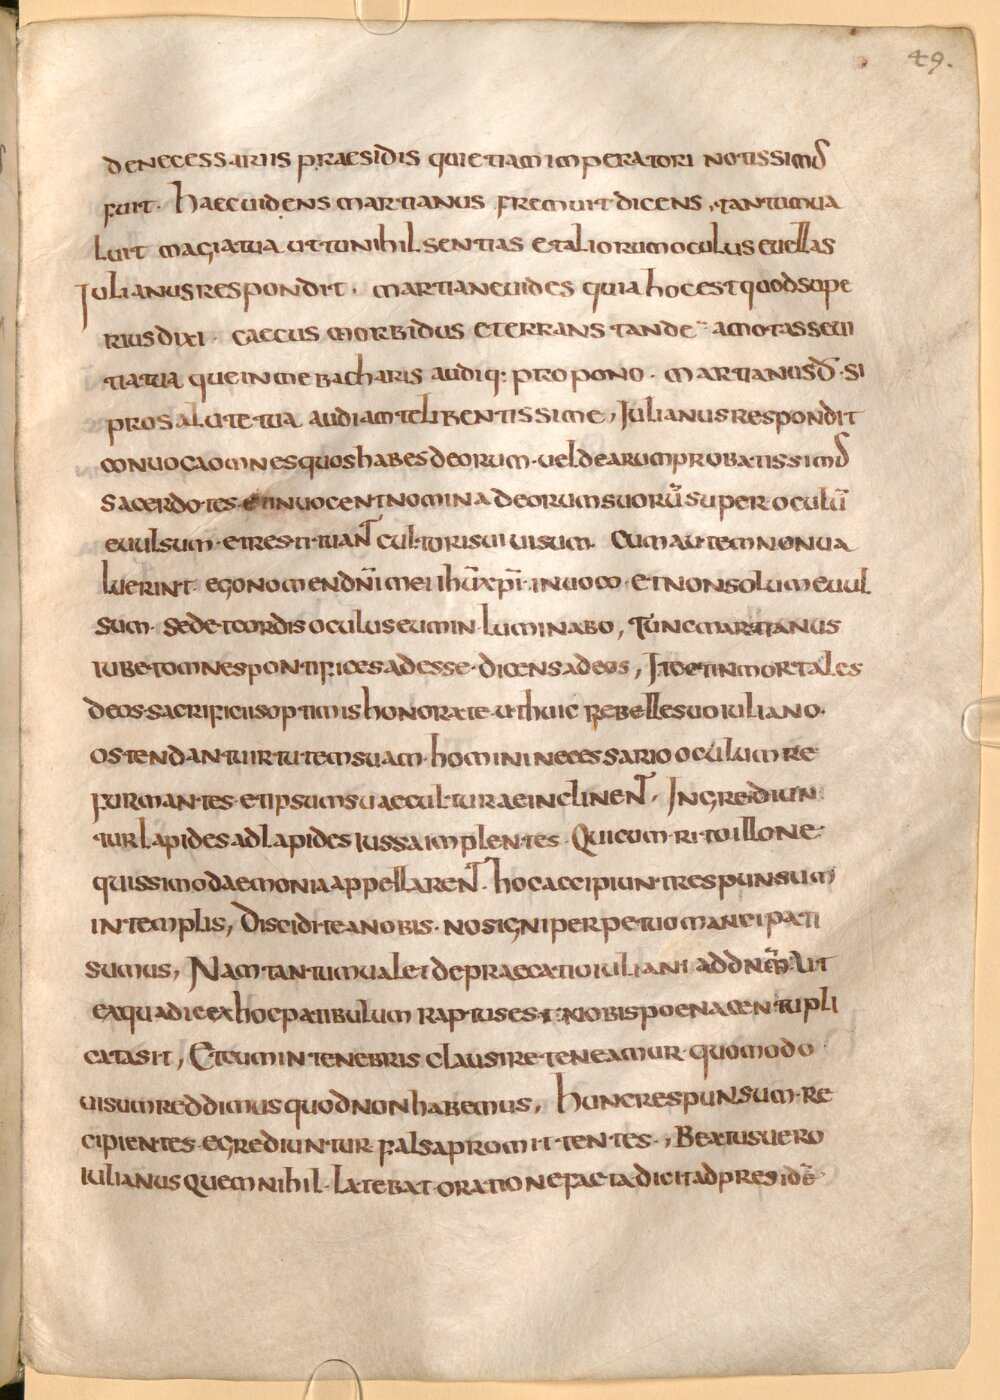 49.
de necessariis praesidis qui etiam imperatori notissim᷒
fuit. haec videns martianus fremuit dicens, tantum va
luit magia tua ut tu nihil sentias et aliorum oculus evellas
Iulianus respondit. martiane vides quia hoc est quod supe
rius dixi. caecus morbidus et errans tandē amota ssevi
tia tua que in me bacharis audi q: propono. martianus d̄. si
pro salute tua audiam te libentissime, Iulianus respondit
convoca omnes quos habes deorum. vel dearum probatissim᷒
sacerdotes. et invocent nomina deorum suorū super oculū
evulsum. et restituant cultori sui visum. Cum autem non va
luerint. ego nomen dn̄i mei ihū xp̄i. invoco. et non solum evul
sum. sed et cordis oculus eum inluminabo, Tunc martianus
iubet omnes pontifices adesse. dicens ad eos, Ite et inmortales
deos sacrificiis optimis honorate. ut huic rebelles uo iuliano.
ostendant virtutem suam. homini necessario oculum re
furmantes. et ipsum suae culturae inclinent. Ingrediun
tur lapides ad lapides iussa implentes. Qui cum ritoillo ne
quissimo daemonia appellarent. hoc accipiunt respunsum
in templis, Discidite a nobis. nos igni perpetuo mancipati
sumus, Nam tantum valet depraecatio iuliani ad dn̄m. Ut
ex qua die ex hoc patibulum raptus est. nobis poena centupli
cata sit, Et cum in tenebris clausi reteneamur. quomodo
visum reddimus quod non habemus, hunc respunsum. re
cipientes egrediuntur falsa promittentes., Beatus vero
iulianus quem nihil. latebat. oratione facta dicit ad presidē